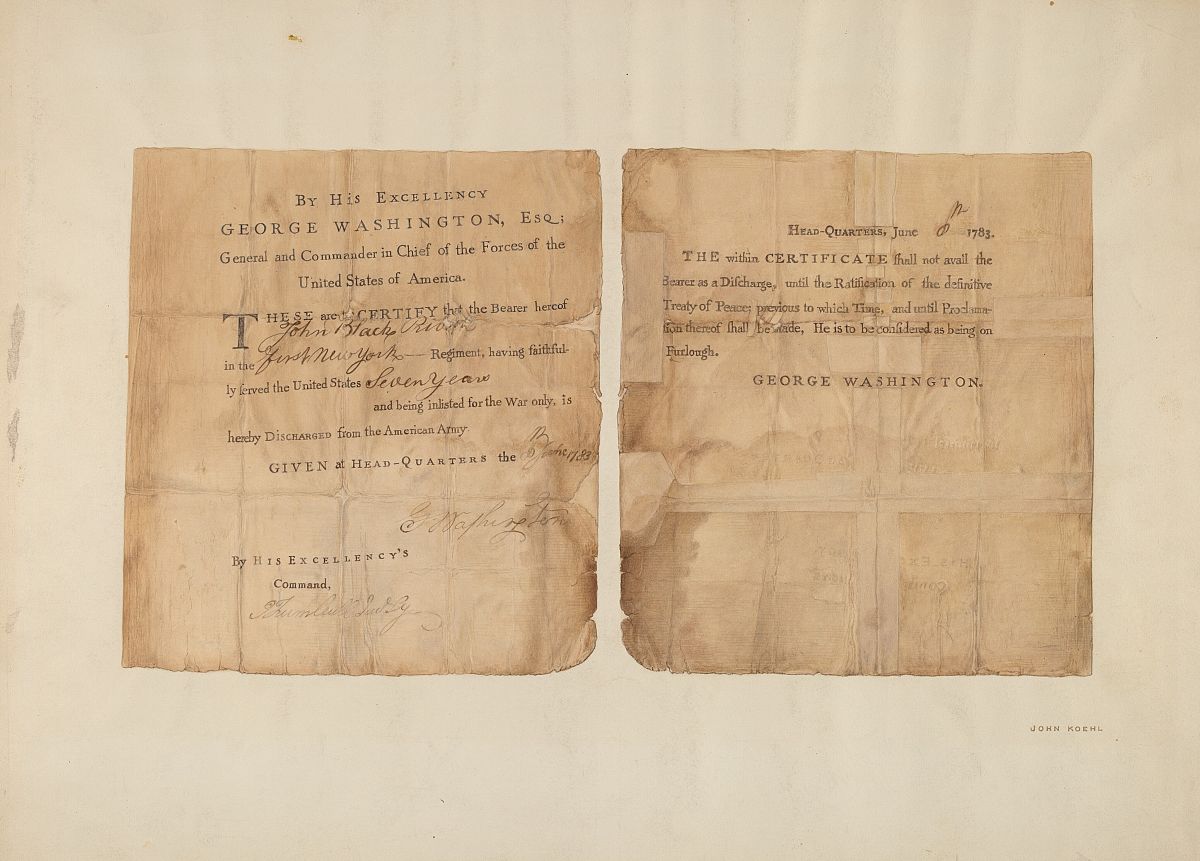 By His Excellency
GEORGE WASHINGTON, Esq;
General and Commander in Chief of the Forces of the
United States of America.
THESE are to CERTIFY that the Bearer hereof
John Black
in the first New York Regiment, having faithful-
ly ſerved the United States Seven Years
and being inliſted for the War only, is
hereby Discharged from the American Army.
GIVEN at Head-Quarters the 8th June 1783
GWaſhington
By His Excellency's
Command,
Head-Quarters, June 8th 1783.
THE within CERTIFICATE ſhall not avail the
Bearer as a Diſcharge, until the Ratification of the definitive
Treaty of Peace; previous to which Time, and until Proclama-
tion thereof ſhall be made, He is to be conſidered as being on
Furlough.
GEORGE WASHINGTON.
JOHN KOEHL